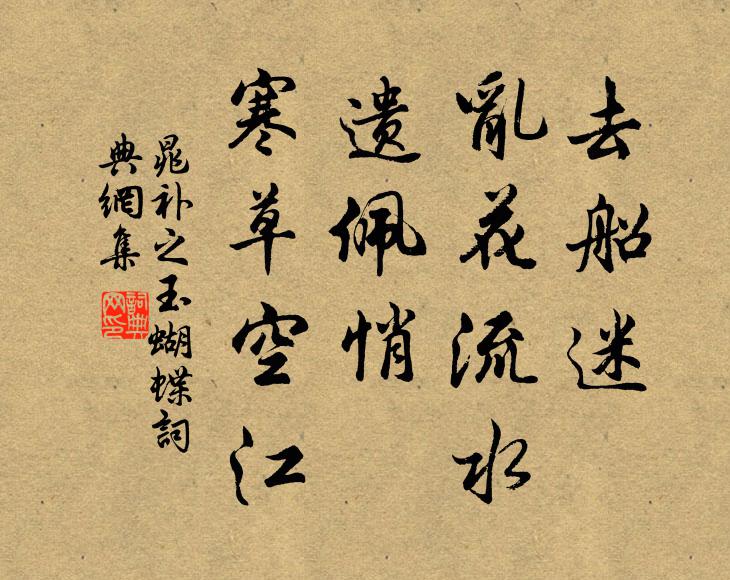 去船迷
亂花流水
遗佩悄
寒草空江
晁补之玉蝴蝶詞
典網集
詞典
网印